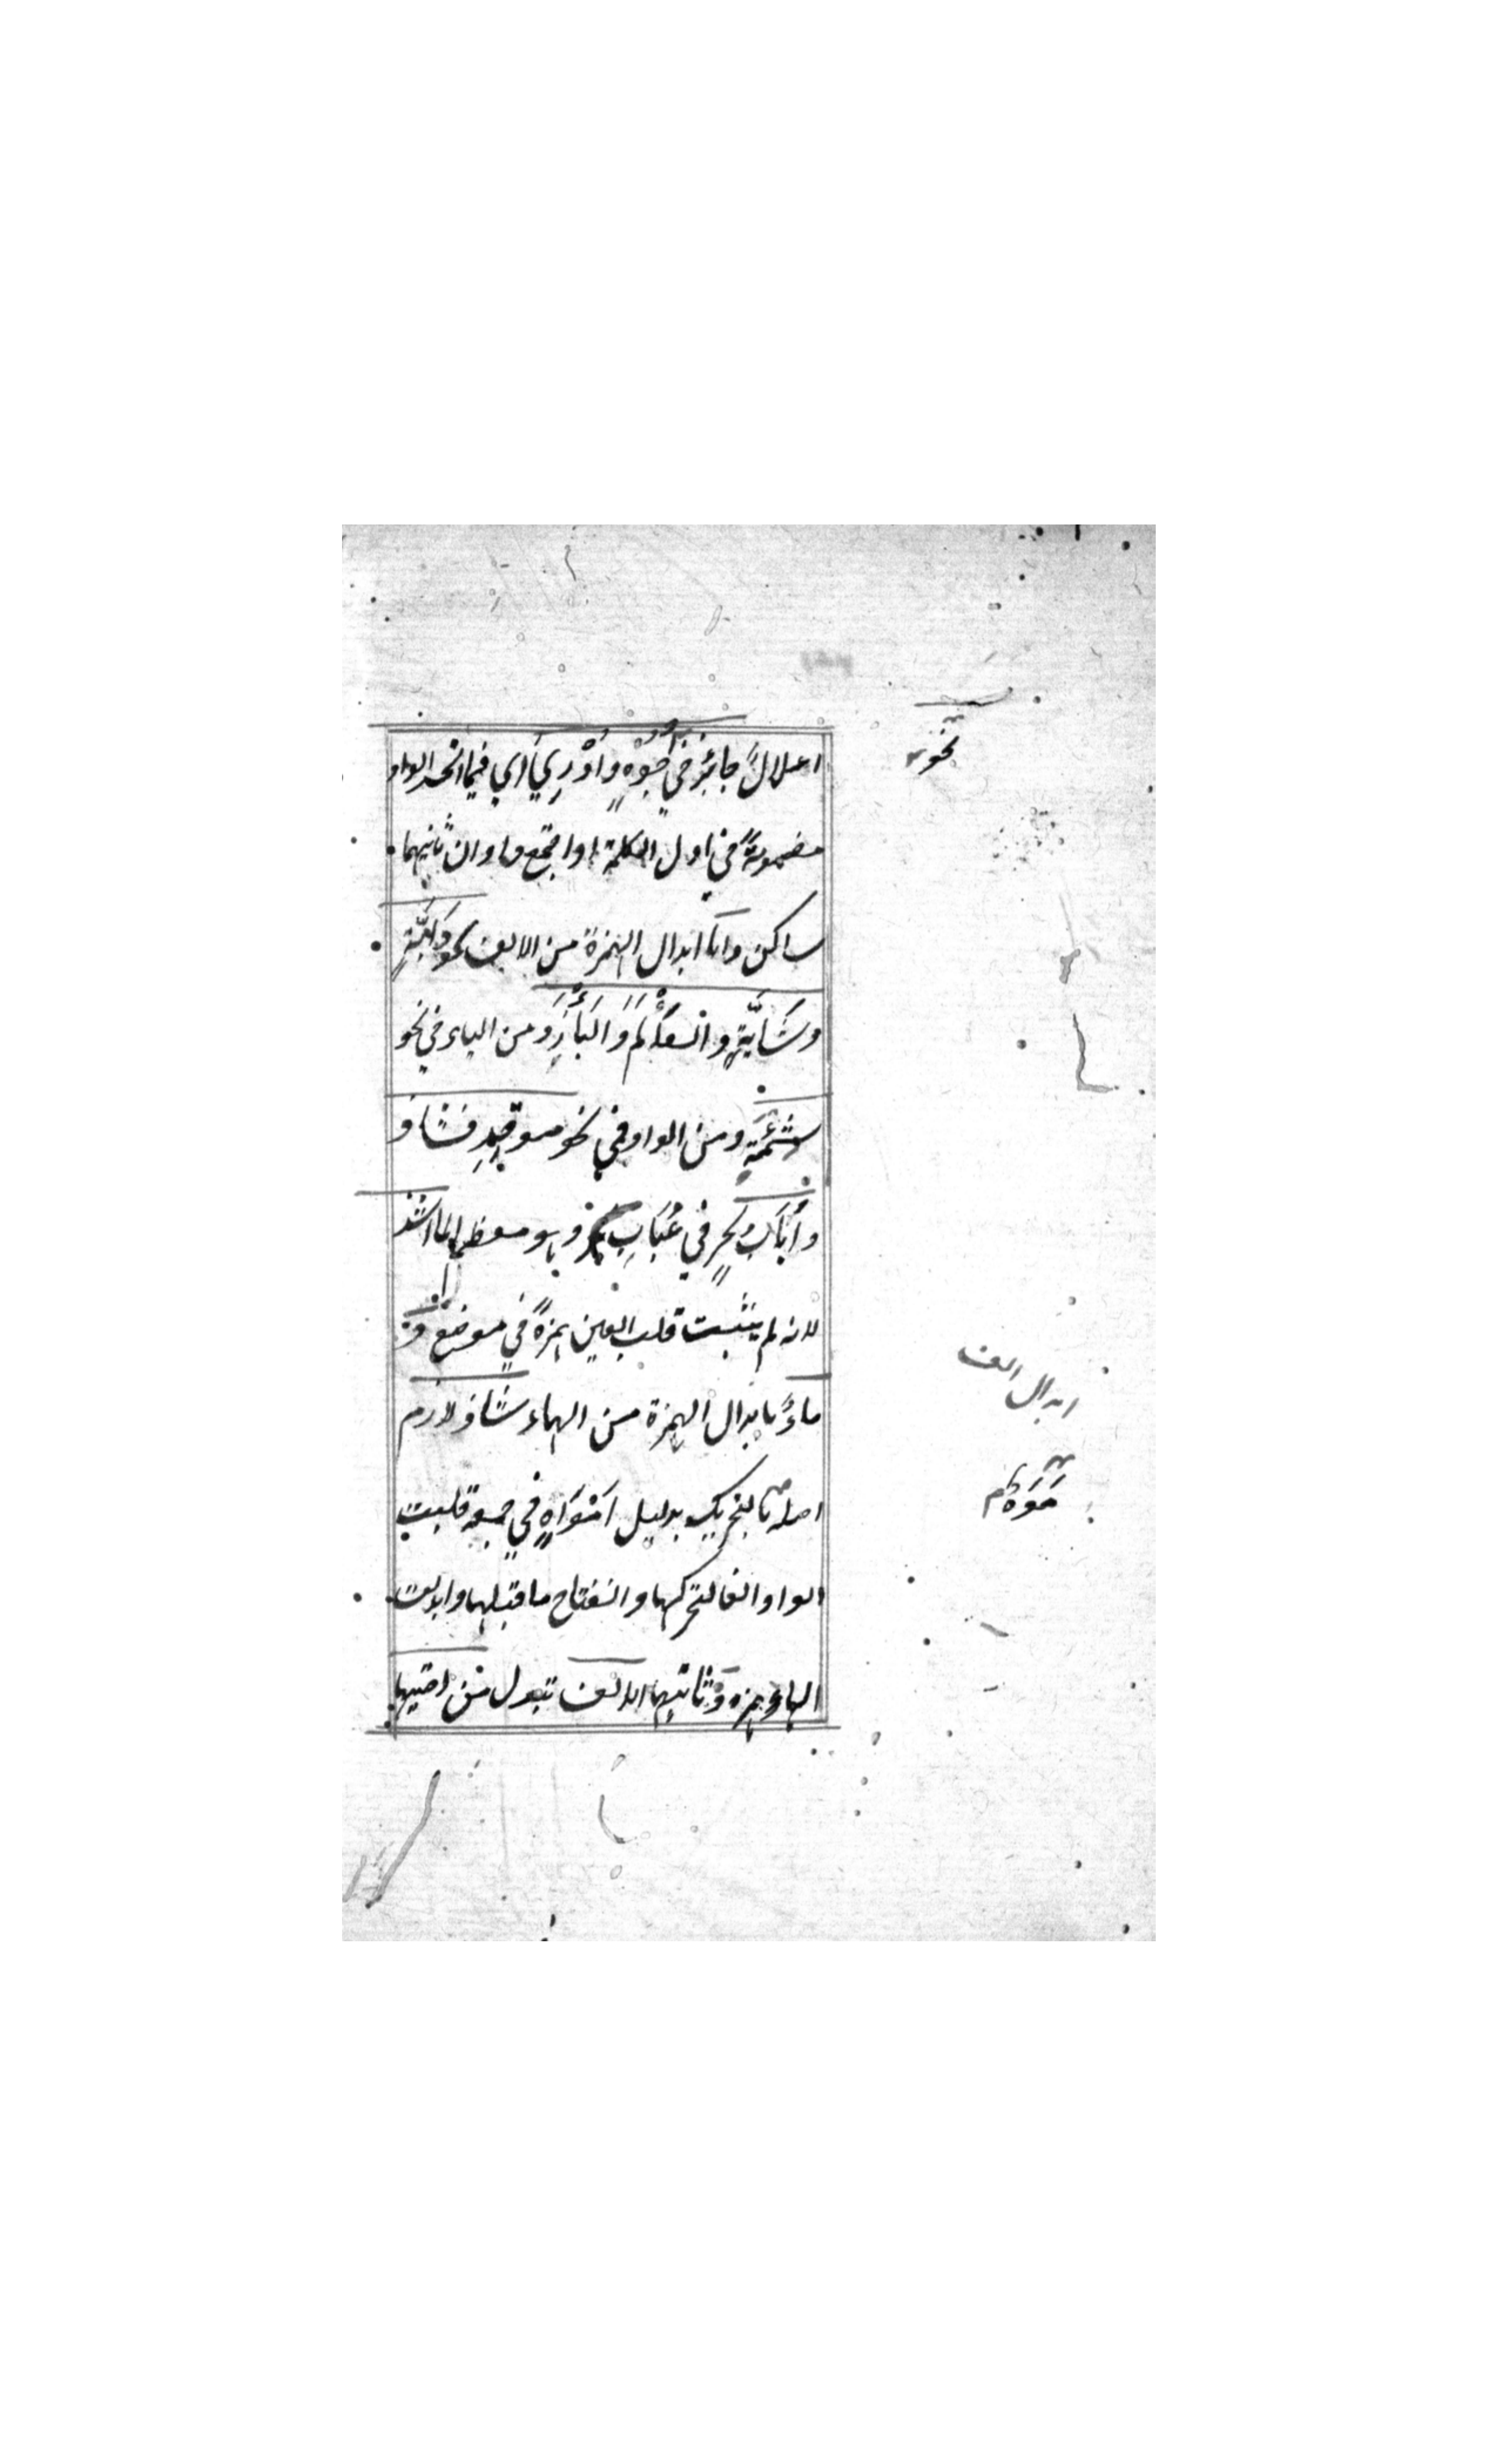 نحو
اعلالٌ جائزٌ في اُجُوْهٍ واُوْرِيَ اي فيما اتحد الواو
مضمومةً في اول الكلمة او اجتمع واوان ثانيهما
ساكن واما ابدال الهمزة من الالف نحو دَأَبَّةٍ
وشَأَبَّةٍ والعَأْلَمِ والبَأْزِ ومن الياء في نحو
شئمَةٍ ومن الواو في نحو مؤقدٍ فشاذ
واُبَابُ بحرٍ في عُبَابِ بحر وهو معظم الماء اشذ
لانه لم يثبت قلب العين همزةً في موضع و
ماءٌ بابدال الهمزة من الهاء شاذ لازم
اصله بالتحريك بدليل اَمْوَاهٍ في جمعه قلبت
الواو الفا لتحركها وانفتاح ما قبلها وابدلت
الهاء همزه وثانيها الالف تبدل من اختيها
ابدال الف
مَوَهٌ